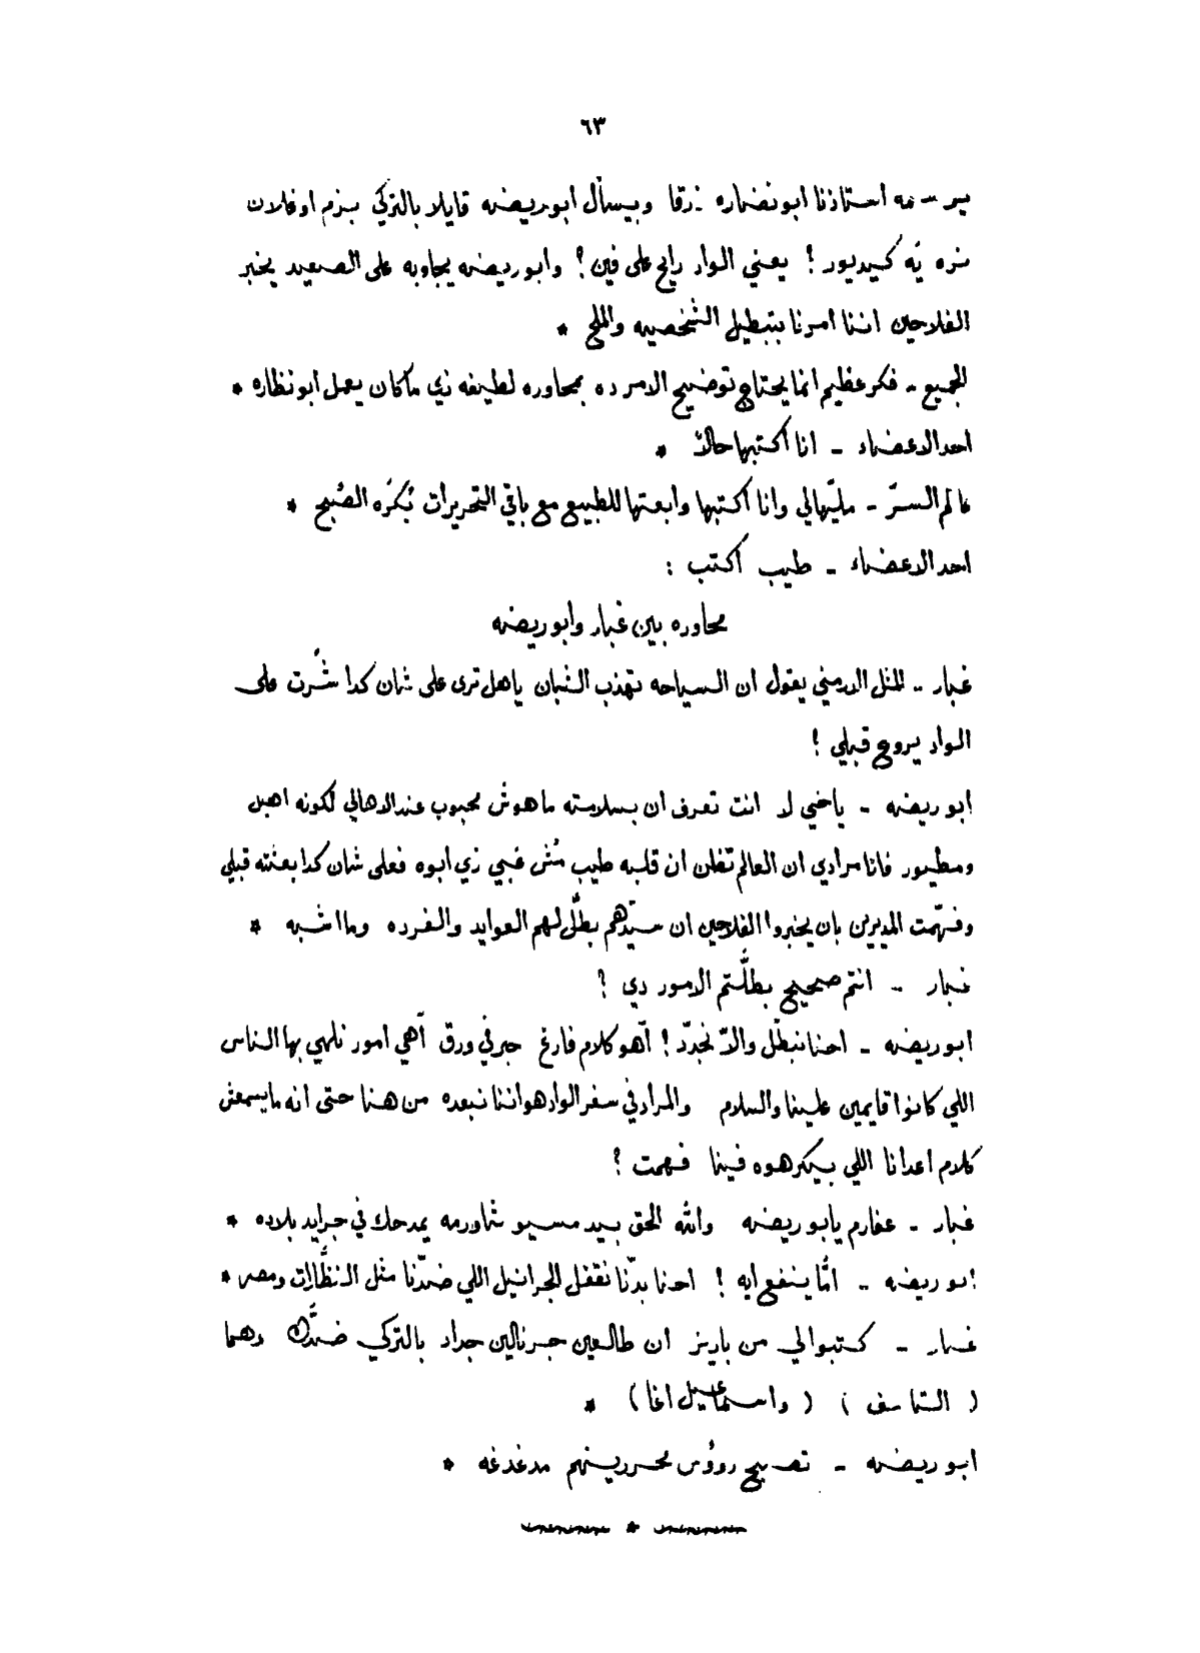 ٦٣
يرسمه استاذنا ابو نضاره زرقا وبيسأل ابو ريضه قايلا بالتركي بزم اوغلان
نره يَه كيديور ؟ يعني الواد رايح على فين ؟ وابو ريضه يجاوبه على الصعيد يخبر
الفلاحين اننا امرنا بتبطيل الشخصيه والملح *
الجميع - فكر عظيم انما يحتاج توضيح الامر ده بمحاوره لطيفه زي ما كان يعمل ابو نظاره *
احد الاعضاء - انا اكتبها حالاً *
عالم السرّ - مليّهالي وانا اكتبها وابعتها للطبيع مع باقي التحريرات بُكرَه الصُبح *
احد الاعضاء - طيب اكتب :
محاوره بين غبار وابو ريضه
غبار - المثل الارمني يقول ان السياحه تهذب الشبان ياهل ترى على شان كدا شُرت على
الواد يروح قبلي ؟
ابو ريضه - ياخي لا انت تعرف ان بسلامته ماهوش محبوب عند الاهالي لكونه اهبل
ومطيور فانا مرادي ان العالم تظن ان قلبه طيب مُش غبي زي ابوه فعلى شان كدا بعتته قبلي
وفهّمت المديرين بان يخبروا الفلاحين ان سيّدهم بطّل لهم العوايد والفرده وما اشبه *
غبار - انتم صحيح بطلّتم الامور دي ؟
ابو ريضه - احنا نبطّل والاّ نجدّد ! أهو كلام فارغ حبر في ورق أهي امور نلهي بها الناس
اللي كانوا قايمين علينا والسلام والمراد في سفر الواد هو اننا نبعده من هنا حتى انه مايسمعش
كلام اعدانا اللي بيكرهوه فينا فهمت ؟
غبار - عفارم يابو ريضه والله الحق بيد مسيو شاورمه يمدحك في جرايد بلاده *
ابو ريضه - امّا ينفع ايه ! احنا بدّنا نقفل الجرانيل اللي ضدّنا مثل النظّارات ومصر *
غبار - كتبوالي من باريز ان طالعين جرنالين جداد بالتركي ضدّك وهما
( الشاسف ) ( واسماعيل اغا ) *
ابو ريضه - تصبح رؤوس محررينهم مدغدغه *